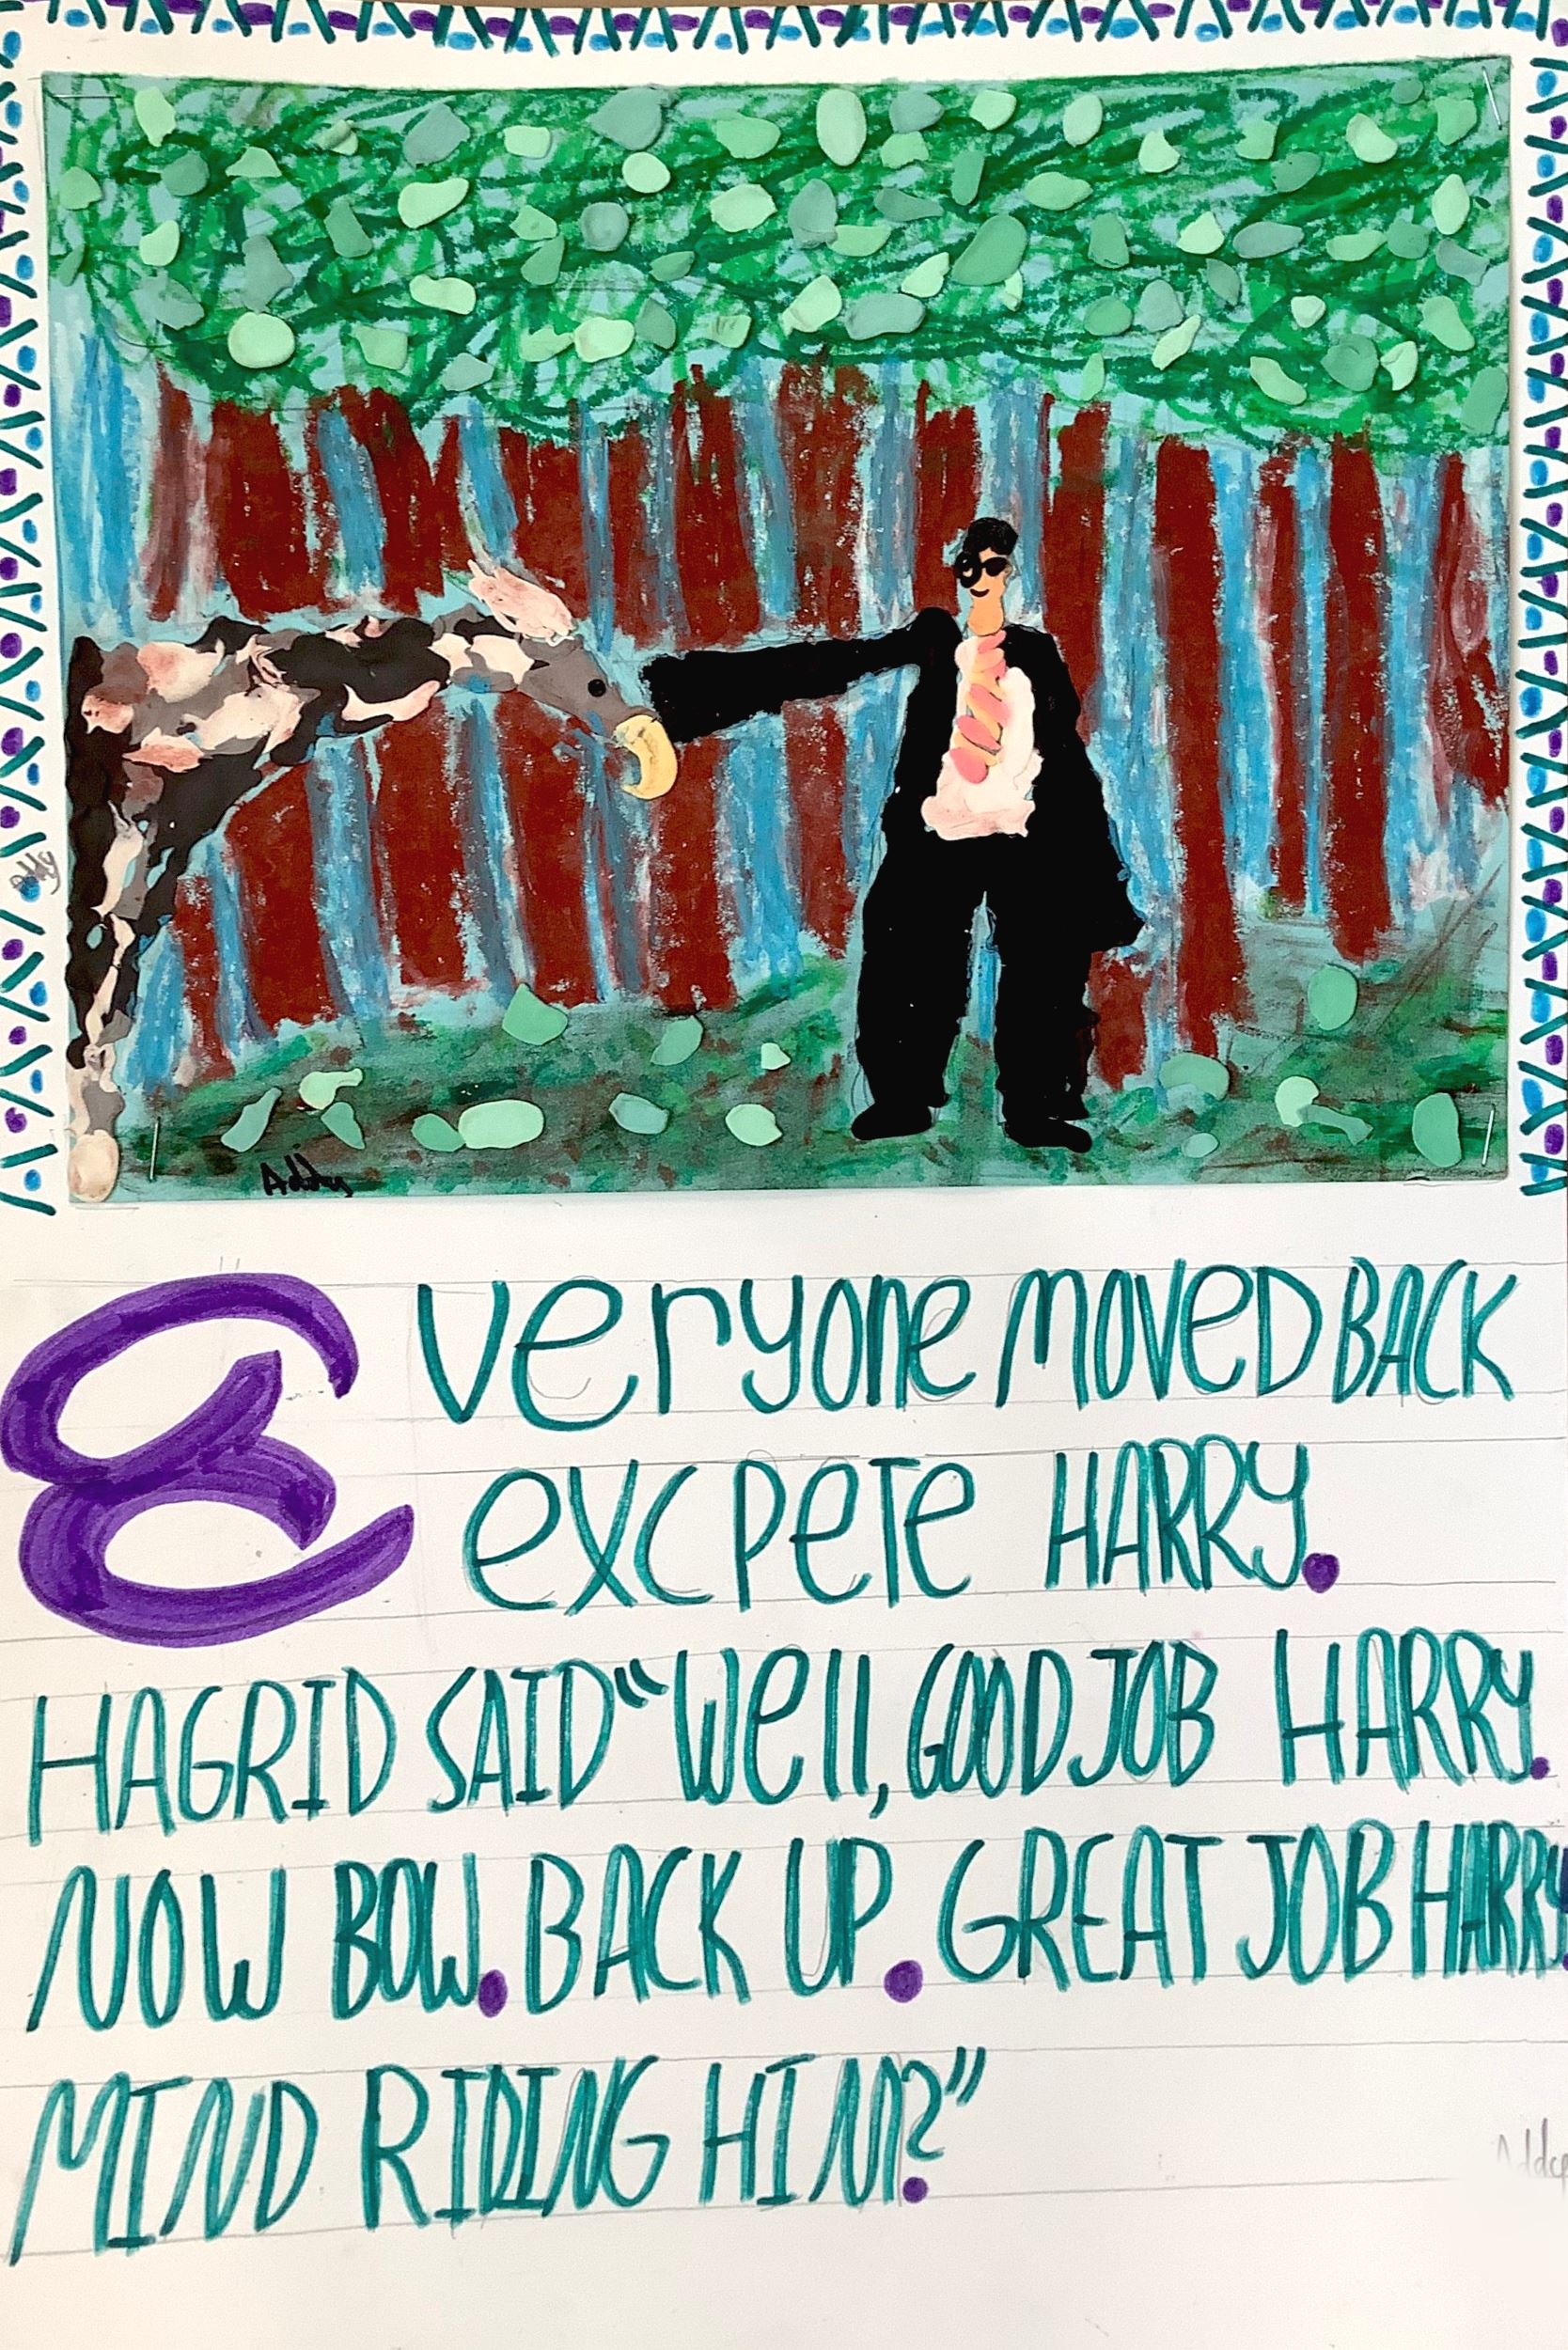 Addy
Addy
Everyone moved BACK
excpete HARRY.
HAGRID SAID "Well, GOOD JOB HARRY.
NOW BOW. BACK UP. GREAT JOB HARRY.
MIND RIDING HIM?"
Addy